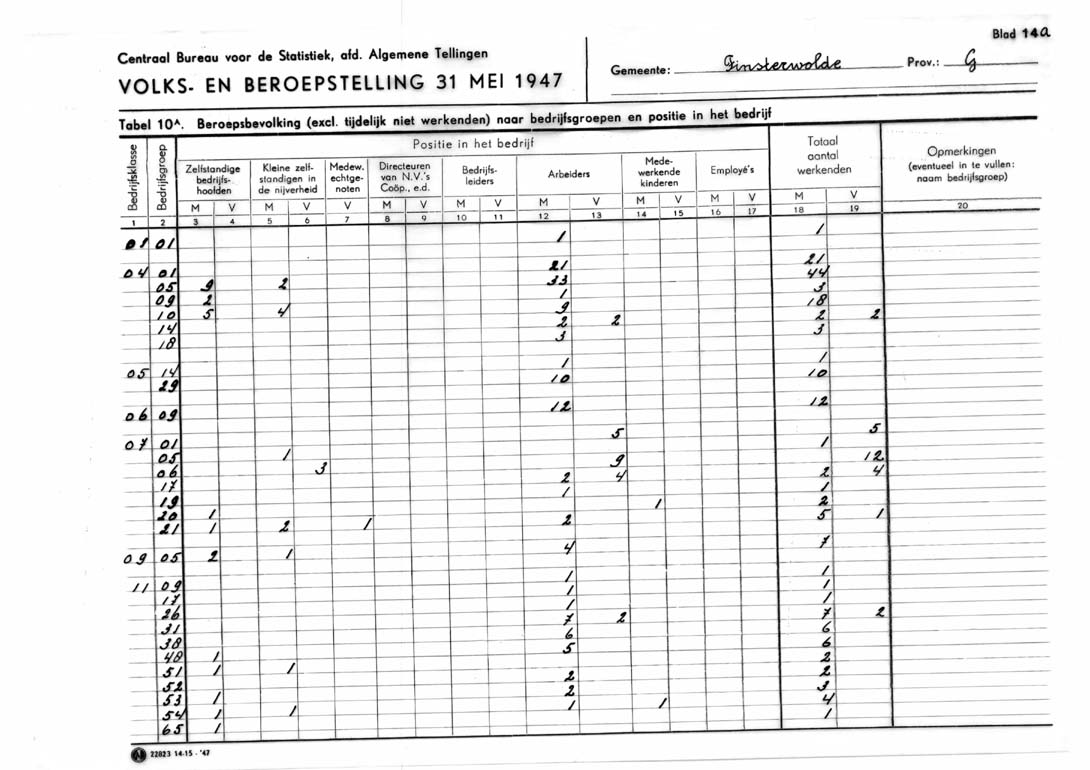 Blad 14a
Centraal Bureau voor de Statistiek, afd. Algemene Tellingen
VOLKS- EN BEROEPSTELLING 31 MEI 1947
Gemeente: Finsterwolde Prov.: G
Tabel 10A. Beroepsbevolking (excl. tijdelijk niet werkenden) naar bedrijfsgroepen en positie in het bedrijf
Bedrijfsklasse
Bedrijfsgroep
Positie in het bedrijf
Zelfstandige
bedrijfs-
hoofden
Kleine zelf-
standigen in
de nijverheid
Medew.
echtge-
noten
Directeuren
van N.V.'s
Coöp., e.d.
Bedrijfs-
leiders
Arbeiders
Mede-
werkende
kinderen
Employé's
Totaal
aantal
werkenden
Opmerkingen
(eventueel in te vullen:
naam bedrijfsgroep)
M V M V V M V M V M V M V M V M V
1 2 3 4 5 6 7 8 9 10 11 12 13 14 15 16 17 18 19 20
01 01 1 1
04 01 21 21
05 9 2 33 44
09 2 1 3
10 5 4 9 18
14 2 2 2 2
18 3 3
05 14 1 1
29 10 10
06 09 12 12
07 01 5 5
05 1 1
06 3 9 12
17 2 4 2 4
19 1 1
20 1 1 2
21 1 2 1 2 5 1
09 05 2 1 4 7
11 09 1 1
17 1 1
26 1 1
31 7 2 7 2
38 6 6
48 1 5 6
51 1 1 2
52 2 2
53 1 2 3
54 1 1 1 1 4
65 1 1
22823 14-15 - '47